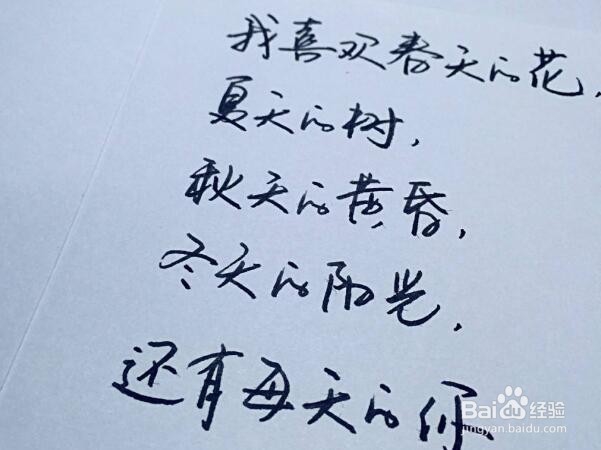 我喜欢春天的花，
夏天的树，
秋天的黄昏，
冬天的阳光，
还有每天的你
Baidu 经验
jingyan.baidu.com